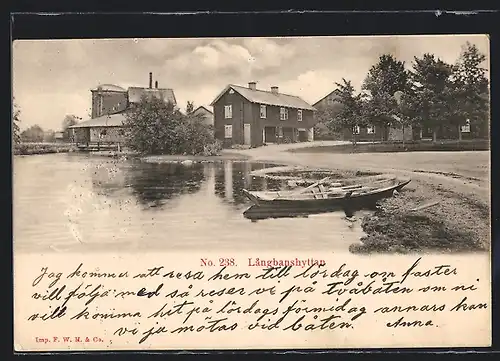 No. 238. Långbanshyttan
Jag kommer att resa hem till lördag om faster
vill följa med så reser vi på tvåbåten om ni
vill komma hit på lördags förmidag annars kan
vi ja mötas vid båten. Anna.
Imp. F. W. H. & Co.